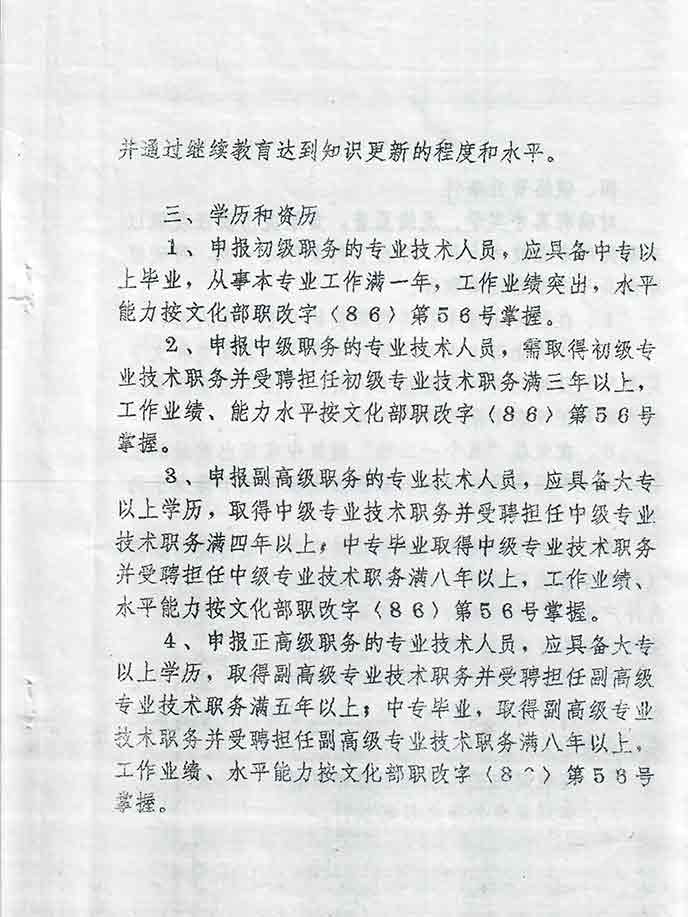 并通过继续教育达到知识更新的程度和水平。
三、学历和资历
1、申报初级职务的专业技术人员，应具备中专以
上毕业，从事本专业工作满一年，工作业绩突出，水平
能力按文化部职改字〈86〉第56号掌握。
2、申报中级职务的专业技术人员，需取得初级专
业技术职务并受聘担任初级专业技术职务满三年以上，
工作业绩、能力水平按文化部职改字〈86〉第56号
掌握。
3、申报副高级职务的专业技术人员，应具备大专
以上学历，取得中级专业技术职务并受聘担任中级专业
技术职务满四年以上；中专毕业取得中级专业技术职务
并受聘担任中级专业技术职务满八年以上，工作业绩、
水平能力按文化部职改字〈86〉第56号掌握。
4、申报正高级职务的专业技术人员，应具备大专
以上学历，取得副高级专业技术职务并受聘担任副高级
专业技术职务满五年以上；中专毕业，取得副高级专业
技术职务并受聘担任副高级专业技术职务满八年以上，
工作业绩、水平能力按文化部职改字〈8 〉第56号
掌握。